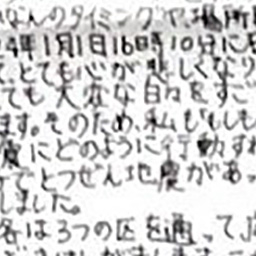 なんのタイミングや場所
24年1月1日16時10分に
て、とても心が悲しくなり
ても大変な日々をすご
ます。そのため、私ももしも
震にどのように行動す
でとつぜん地震があっ
しました。
各は3つの区を通って